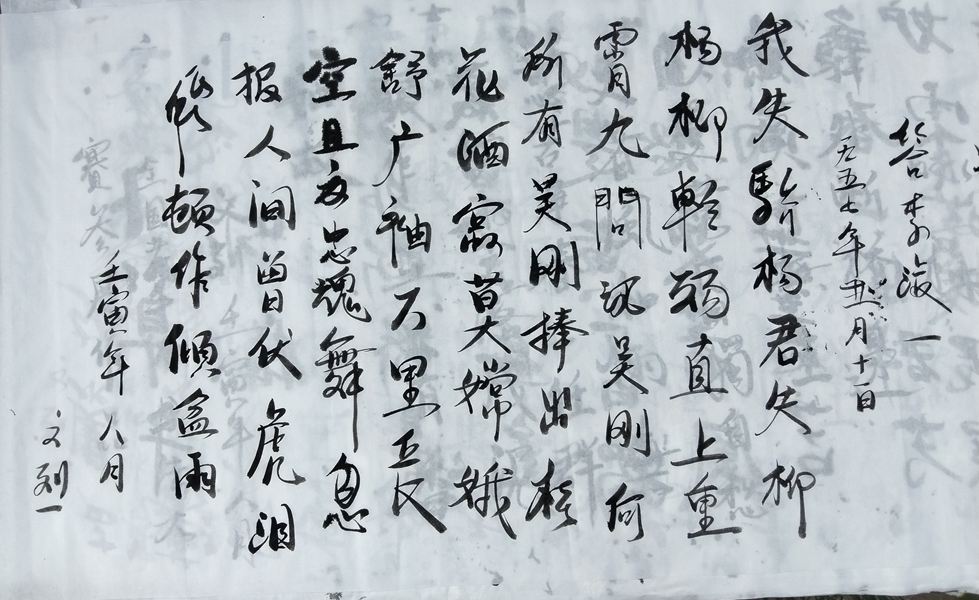 答李淑一
一九五七年五月十一日
我失骄杨君失柳
杨柳轻飏直上重
霄九問讯吴刚何
所有吴刚捧出桂
花酒寂寞嫦娥
舒广袖万里长
空且为忠魂舞忽
报人间曾伏虎泪
飛顿作倾盆雨
壬寅年八月
文列